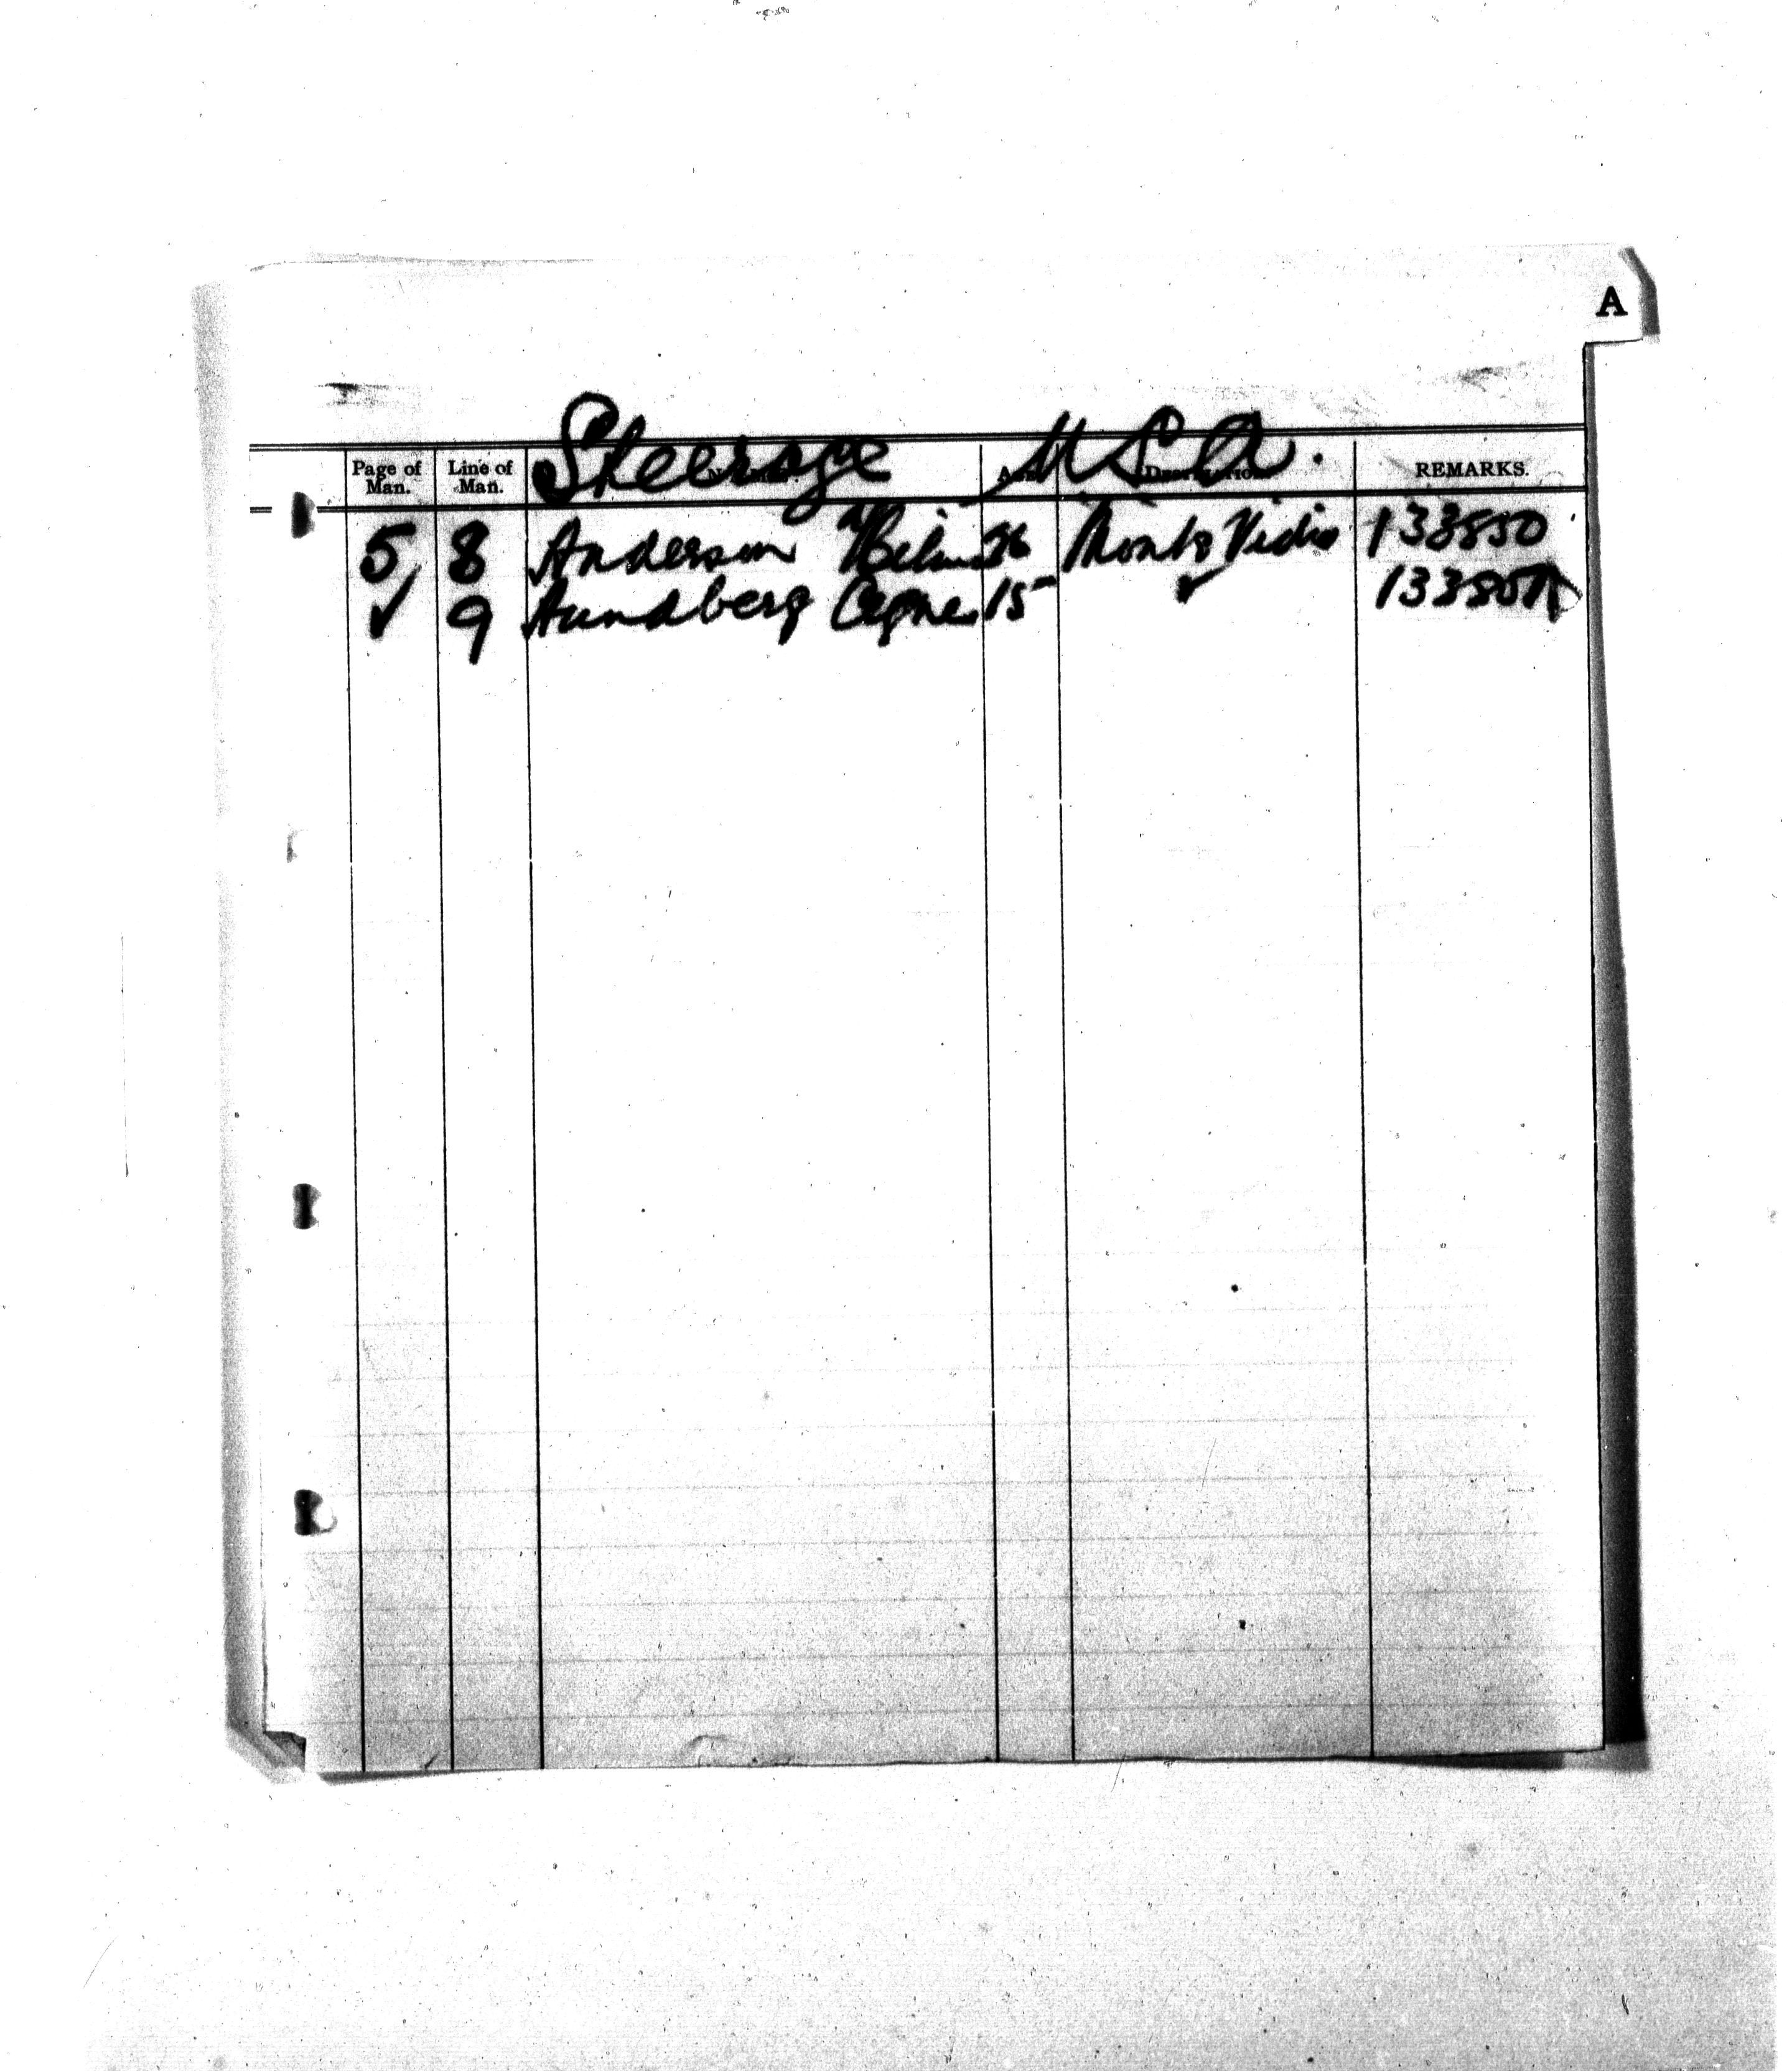 A
Steerage U S A.
Page of Man. Line of Man. REMARKS.
5 8 Anderson 26 Monte Vidio 133850
✓ 9 Aundberg Agnes 15 ✓